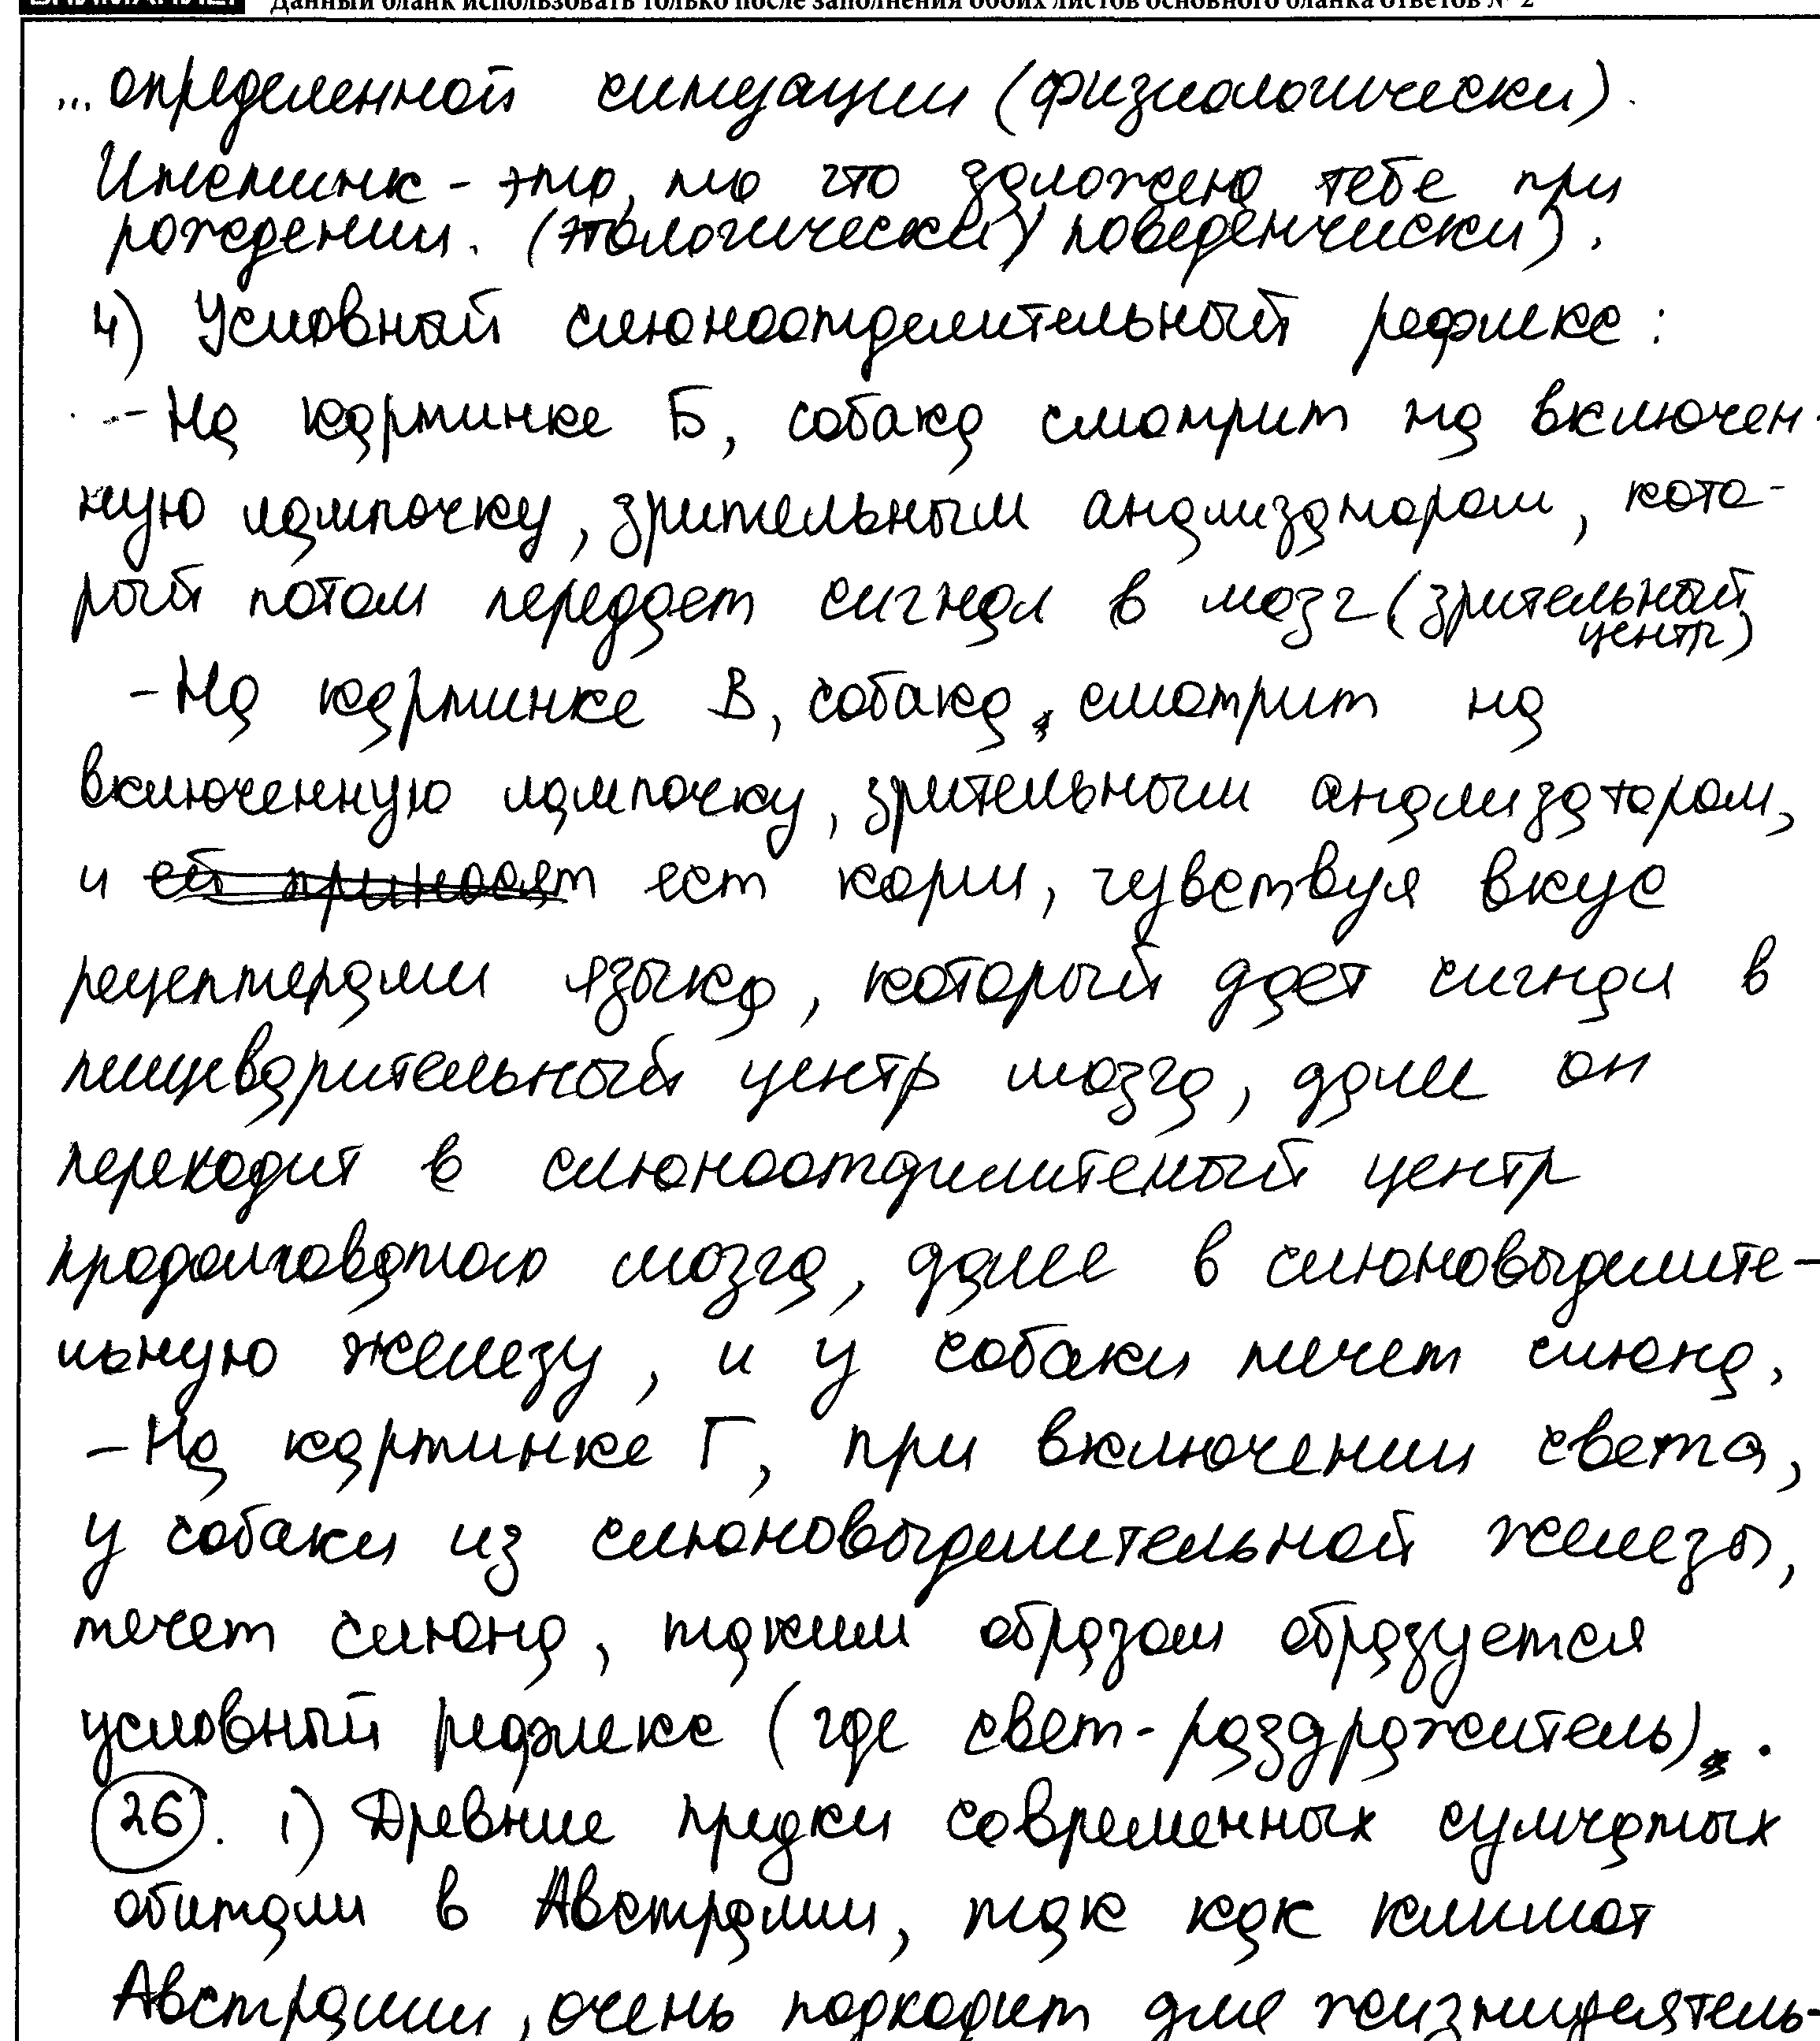 Данный бланк использовать только после заполнения обоих листов основного бланка ответов № 2
... определенной ситуации (физиологически).
Инстинкт - это, то что заложено тебе при
рождении. (этологически/поведенчиски).
4) Условный слюноотделительный рефлекс:
- На картинке Б, собака смотрит на включен-
ную лампочку, зрительным анализатором, кото-
рый потом передает сигнал в мозг (зрительный
центр)
- На картинке В, собака, смотрит на
включенную лампочку, зрительным анализатором,
и ей приносят ест корм, чувствуя вкус
рецепторами языка, который дает сигнал в
пищеварительный центр мозга, далее он
переходит в слюноотделительный центр
продолговатого мозга, далее в слюновыделите-
льную железу, и у собаки течет слюна.
- На картинке Г, при включении света,
у собаки из слюновыделительной железы,
течет слюна, таким образом образуется
условный рефлекс (где свет - раздражитель).
26. 1) Древние предки современных сумчатых
обитали в Австралии, так как климат
Австралии, очень подходит для жизнидеятель-